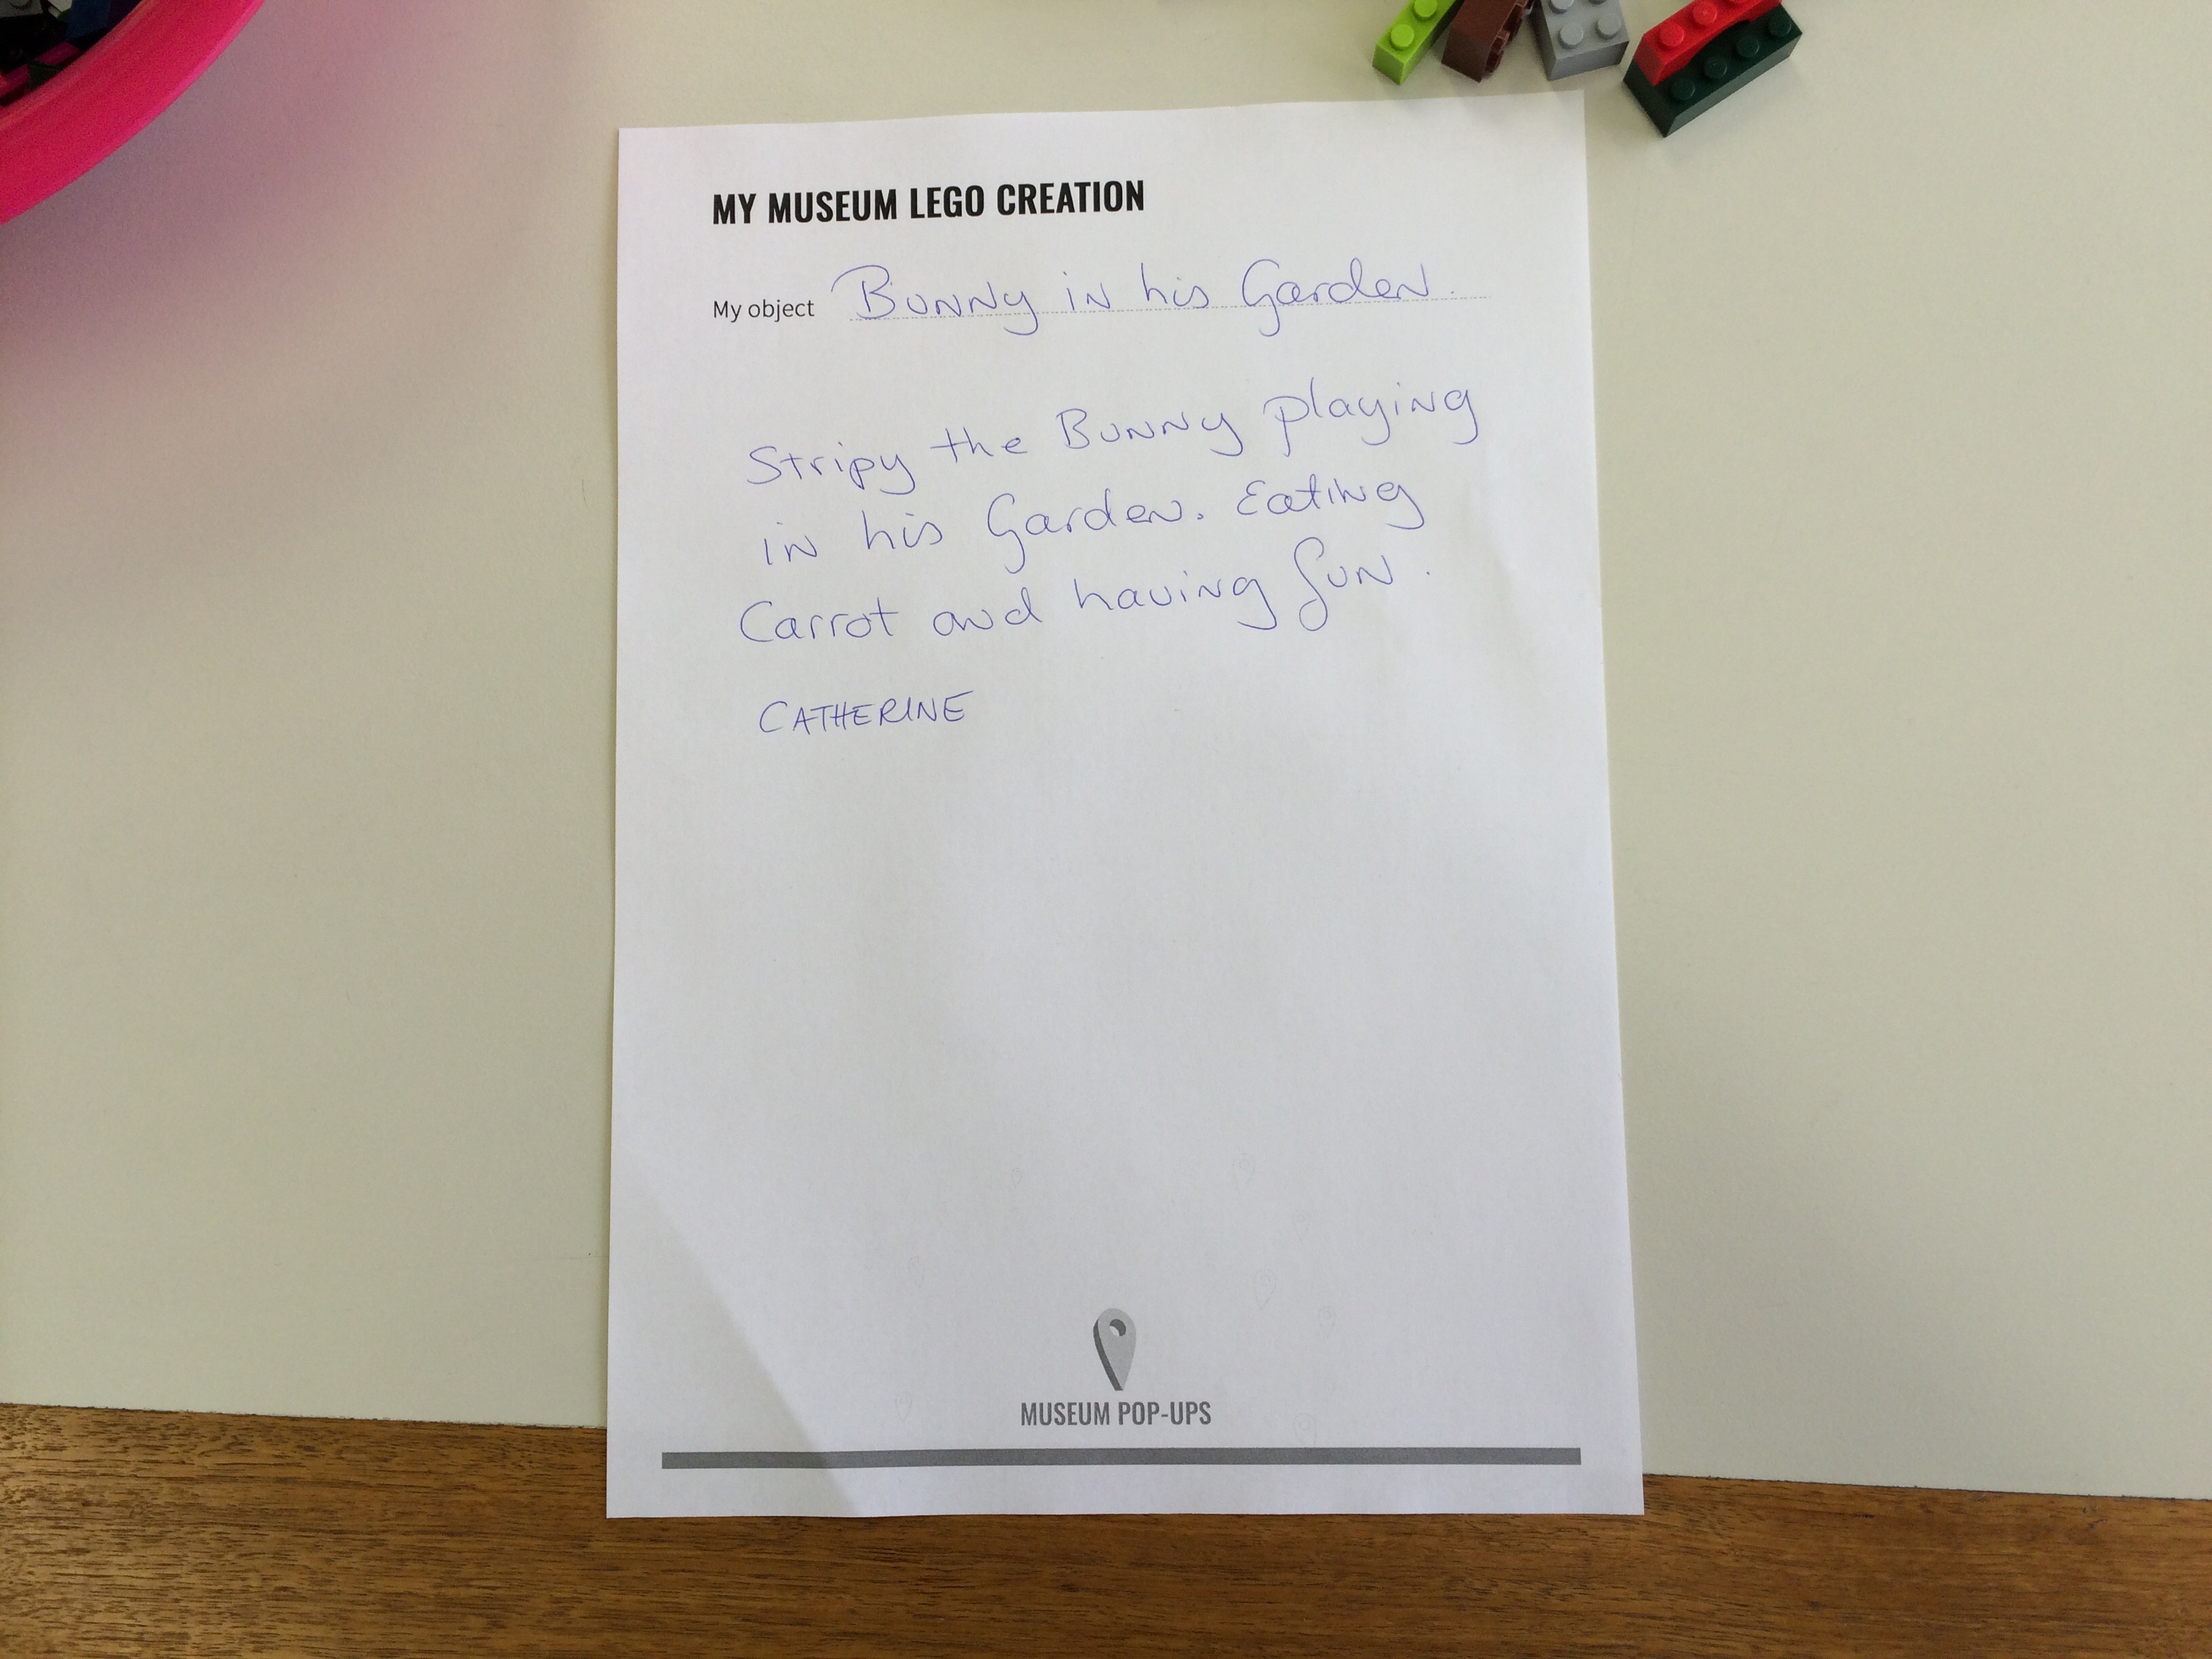 MY MUSEUM LEGO CREATION
My object Bunny in his Garden.
Stripy the Bunny playing
in his Garden. Eating
Carrot and having fun.
CATHERINE
MUSEUM POP-UPS